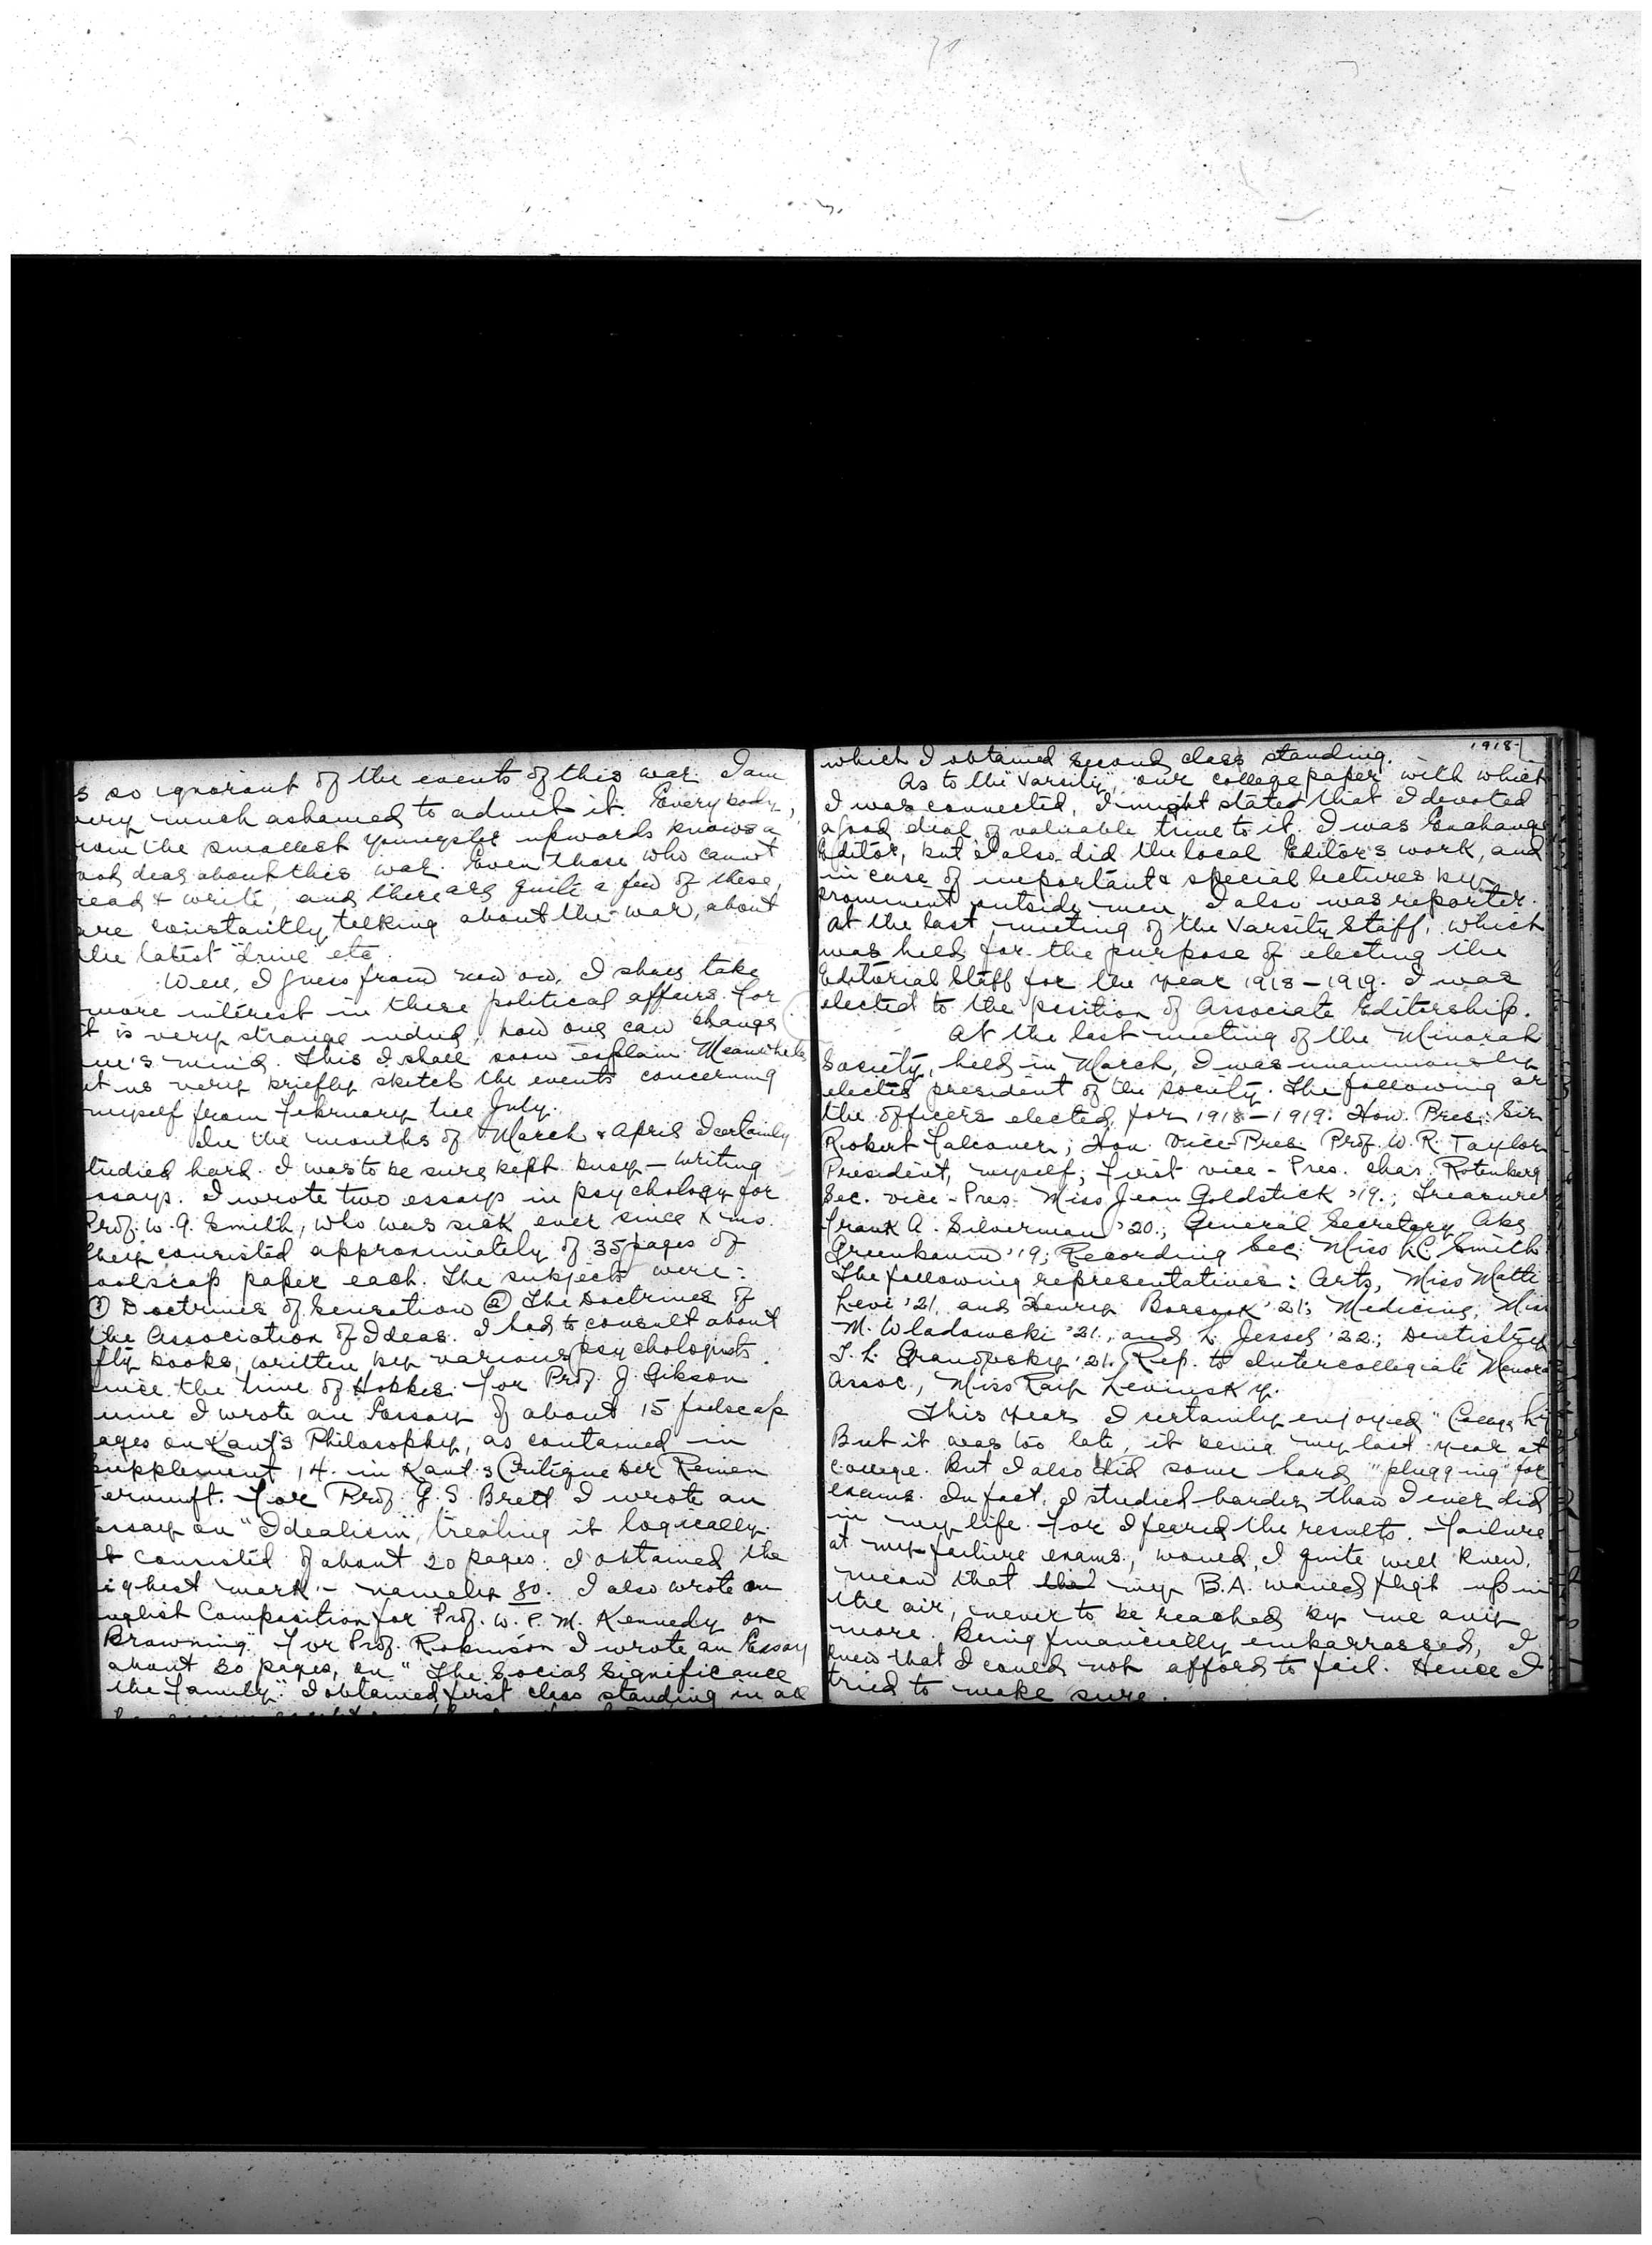 s so ignorant of the events of this war. I am
very much ashamed to admit it. Everybody,
rom the smallest youngster upwards knows a
ood deal about this war. Even those who cannot
read & write, and there are quite a few of these,
are constantly talking about the war, about
the latest "drive" etc.
Well, I guess from now on, I shall take
more interest in these political affairs. For
it is very strange indeed, how one can change
ne's mind. This I shall soon explain. Meanwhile
et us very briefly sketch the events concerning
myself from February till July.
In the months of March & April I certainly
tudied hard. I was to be sure kept busy — writing
ssays. I wrote two essays in psychology for
Prof. W. G. Smith, who was sick ever since Xmas.
They consisted approximately of 35 pages of
oolscap paper each. The subjects were:
① Doctrines of Sensation ② The Doctrines of
the Association of Ideas. I had to consult about
fty books, written by various psychologists
since the time of Hobbes. For Prof. J. Gibson
ume I wrote an Essay of about 15 foolscap
ages on Kant's Philosophy, as contained in
Supplement 14. in Kant's Critique Der Reinen
ernunft. For Prof. G. S. Brett I wrote an
essay on "Idealism", treating it logically.
t consisted of about 20 pages. I obtained the
ighest mark — namely 80. I also wrote an
nglish Composition for Prof. W. P. M. Kennedy on
Browning." For Prof. Robinson I wrote an Essay
about 30 pages, on "The Social Significance
the Family." I obtained first class standing in all
1918-
which I obtained second class standing.
As to the "Varsity", our college paper with which
I was connected, I might stated that I devoted
a good deal of valuable time to it. I was Exchange
Editor, but I also did the local Editor's work, and
in case of important & special lectures by
prominent outside men, I also was reporter.
At the last meeting of the Varsity Staff, which
was held for the purpose of electing the
Editorial Staff for the year 1918-1919. I was
elected to the position of Associate Editership.
At the last meeting of the Minorah
Society, held in March, I was unanimously
elected president of the society. The following ar
the officers elected for 1918-1919: Hon. Pres: Sir
Robert Falconer; Hon. Vice-Pres. Prof. W. R. Taylor
President, myself; First vice-Pres. Chas. Rotenberg
Sec. vice-Pres. Miss Jean Goldstick '19.; Treasurer
Frank A. Silverman '20.; General Secretary Abe
Greenbaum '19; Recording Sec. Miss L.C. Smith
The following representatives: Arts, Miss Matti
Levi '21, and Henry Borsook '21; Medicine, Miss
M. Wladowski '21., and L. Jessel '22.; Dentistry
T. L. Granofsky '21. Rep. to Intercollegiate Menora
Assoc., Miss Ray Levinsky.
This year I certainly enjoyed "College li
But it was too late, it being my last year at
college. But I also did some hard "plugging" for
exams. In fact, I studied harder than I ever did
in my life. For I feared the results. Failure
at my failure exams, would, I quite well knew,
mean that the my B.A. would fligt up in
the air, never to be reached by me any
more. Being financially embarrassed, I
knew that I could not afford to fail. Hence I
tried to make sure.